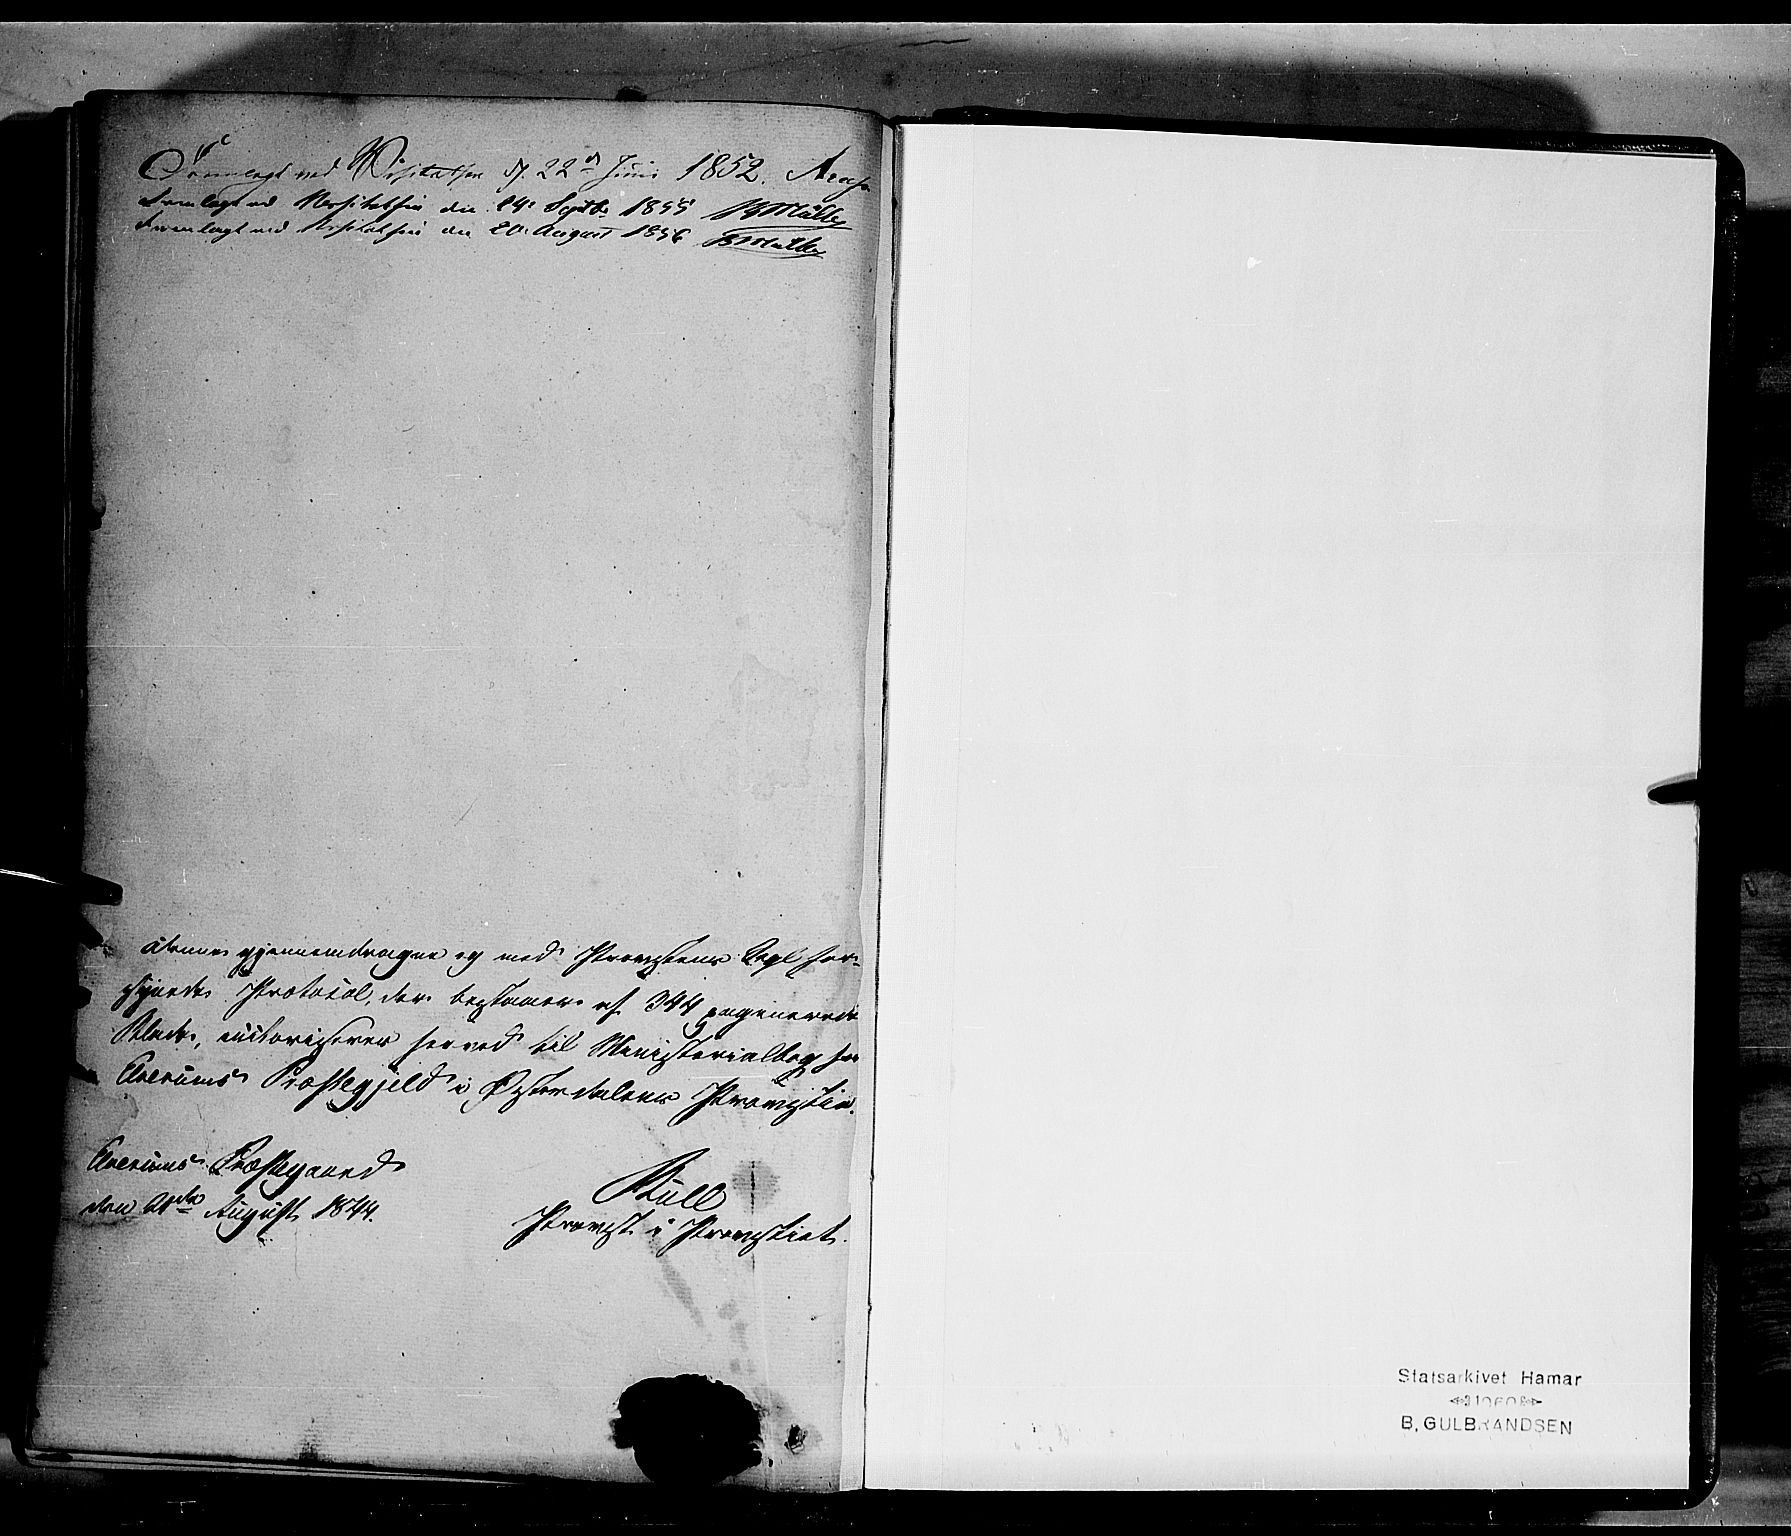 Fremlagt ved Visitatsen d. 22d Juni 1852. Arup
Fremlagt ved Visitatsen den 24. Septbr 1855
Fremlagt ved Visitatsen den 20. August 1856
Denne gjennemdragne og med Provstens Segl for-
synede Protocol, der bestaaer af 344 paginerede
Blade, autoriseres herved til Ministerialbog for
Elverums Præstegjeld i Østerdalens Provstie.
Elverums Præstegaard
den August 1844.
Provst i Provstiet.
Statsarkivet Hamar
B. GULBRANDSEN